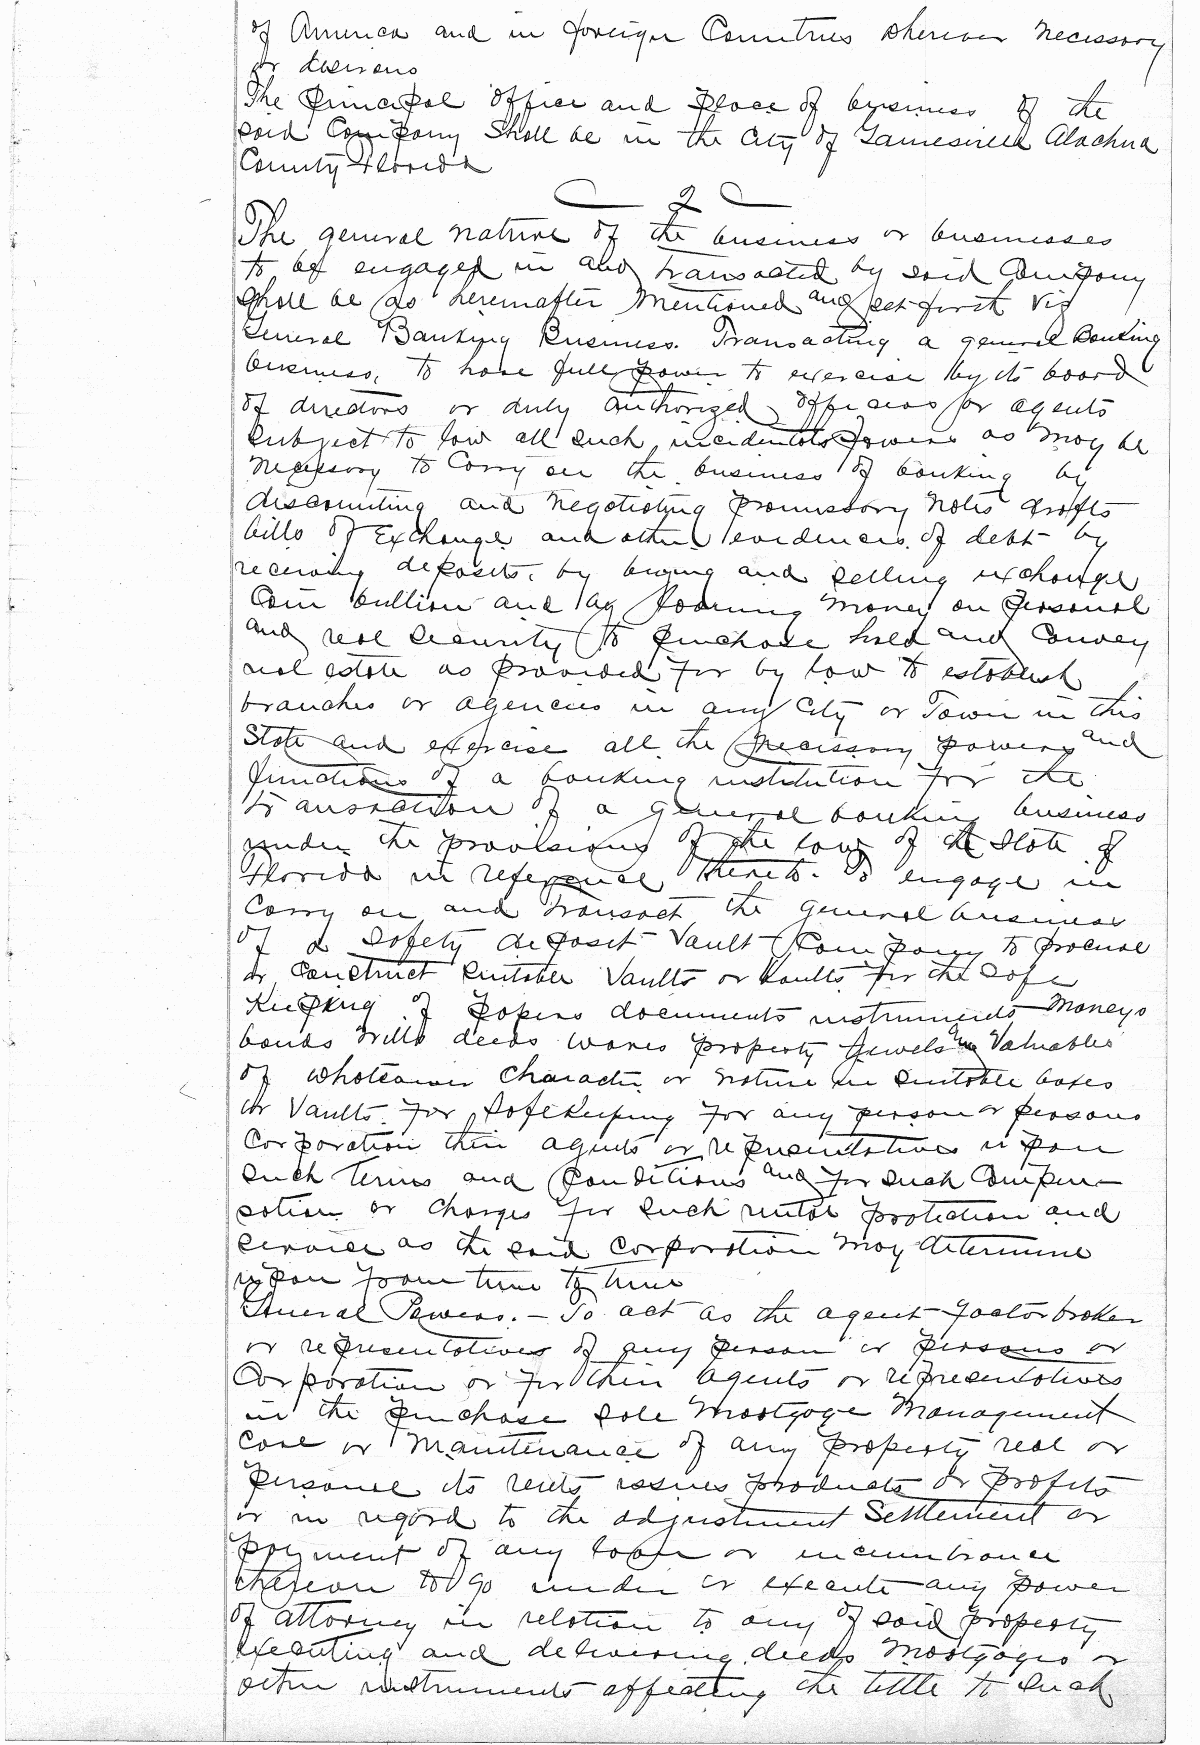 of America and in foreign Countries wherever necessary
or desirous
The principal office and place of business of the
said Company Shall be in the City of Gainesville Alachua
County Florida
2
The general nature of the business or businesses
to be engaged in and transacted by said Company
shall be as hereinafter Mentioned and set forth Viz
General Banking Business. Transacting a general Banking
business, to have full power to exercise by its board
of directors or duly authorized officers or agents
subject to law all such incidentals powers as may be
necessary to Carry on the business of banking by
discounting and negotiating promissory notes drafts
bills of Exchange and other evidences of debt by
receiving deposits, by buying and selling exchange
Coin bullion and by loaning money on personal
and real security to purchase hold and Convey
real estate as provided for by law to establish
branches or agencies in any City or Town in this
State and exercise all the necessary powers and
functions of a banking institution for the
transaction of a general banking business
under the provisions of the law of the State of
Florida in reference thereto. To engage in
Carry on and transact the general business
of a safety deposit Vault Company to procure
or Construct suitable Vaults or Vaults for the safe
Keeping of papers documents instruments Moneys
bonds wills deeds wares property Jewels and Valuables
of whatsoever Character or nature in suitable boxes
or Vaults for safekeeping for any person or persons
Corporation their agents or representatives upon
such terms and Conditions and for such Compen-
sation or charges for such rental protection and
service as the said Corporation may determine
upon from time to time
General Powers. - To act as the agent factor broker
or representatives of any person or persons or
Corporation or for their agents or representatives
in the purchase sale Mortgage Management
care or Maintenance of any property real or
personal its rents issues products or profits
or in regard to the adjustment Settlement or
payment of any loan or incumbrance
thereon to go under or execute any power
of attorney in relation to any of said property
executing and delivering deeds Mortgages or
other instruments affecting the tittle to such